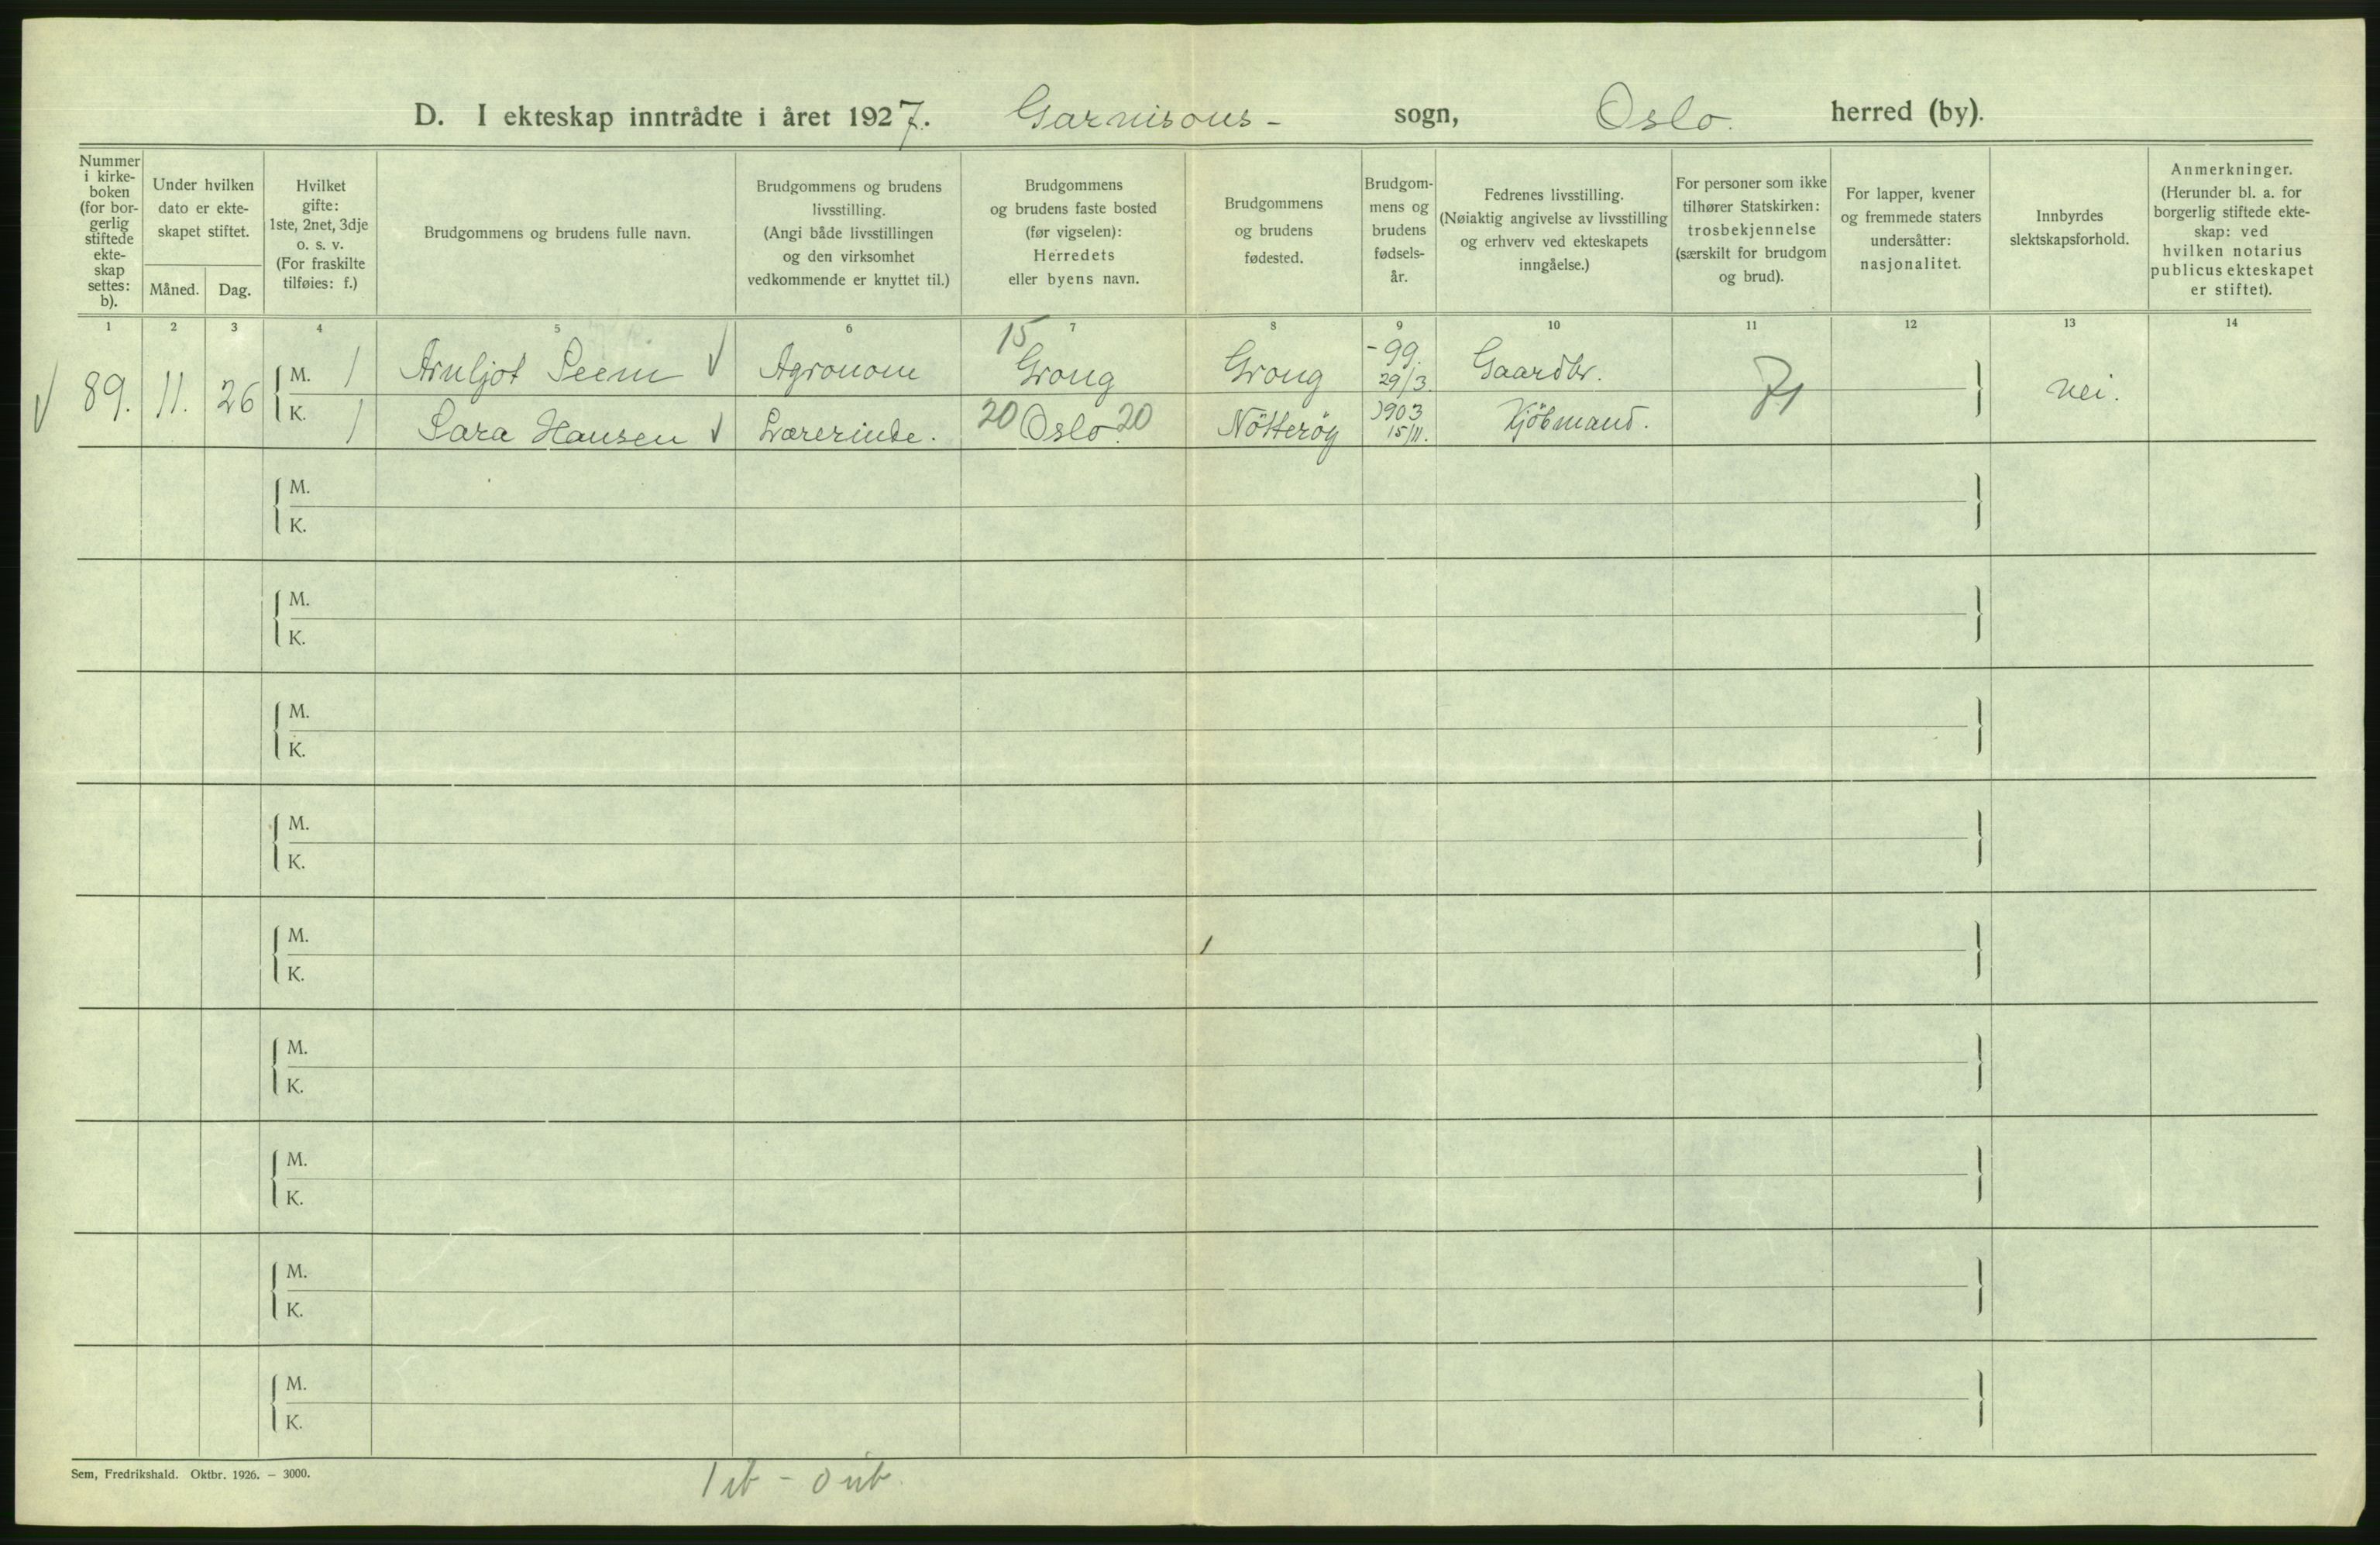 D. I ekteskap inntrådte i året 1927. Garnisons- sogn, Oslo. herred (by).
Nummer i kirke-boken (for bor-gerlig stiftede ekte-skap settes: b).
Under hvilken dato er ekte-skapet stiftet.
Måned. Dag.
Hvilket gifte: 1ste, 2net, 3dje o. s. v. (For fraskilte tilføies: f.)
Brudgommens og brudens fulle navn.
Brudgommens og brudens livsstilling. (Angi både livsstillingen og den virksomhet vedkommende er knyttet til.)
Brudgommens og brudens faste bosted (før vigselen): Herredets eller byens navn.
Brudgommens og brudens fødested.
Brudgom-mens og brudens fødsels-år.
Fedrenes livsstilling. (Nøiaktig angivelse av livsstilling og erhverv ved ekteskapets inngåelse.)
For personer som ikke tilhører Statskirken: trosbekjennelse (særskilt for brudgom og brud).
For lapper, kvener og fremmede staters undersåtter: nasjonalitet.
Innbyrdes slektskapsforhold.
Anmerkninger. (Herunder bl. a. for borgerlig stiftede ekte-skap: ved hvilken notarius publicus ekteskapet er stiftet).
1 2 3 4 5 6 7 8 9 10 11 12 13 14
15
89. 11. 26 M. 1 Arnljot Seem Agronom Grong Grong -99. 29/3. Gaardbr. nei.
K. 1 Sara Hansen Lærerinde. 20 Oslo. 20 Nötteröy 1903 15/11. Kjöbmand.
M.
K.
M.
K.
M.
K.
M.
K.
M.
K.
M.
K.
M.
K.
M.
K.
M.
K.
Sem, Fredrikshald. Oktbr. 1926. — 3000.
1 ib - 0 uib.